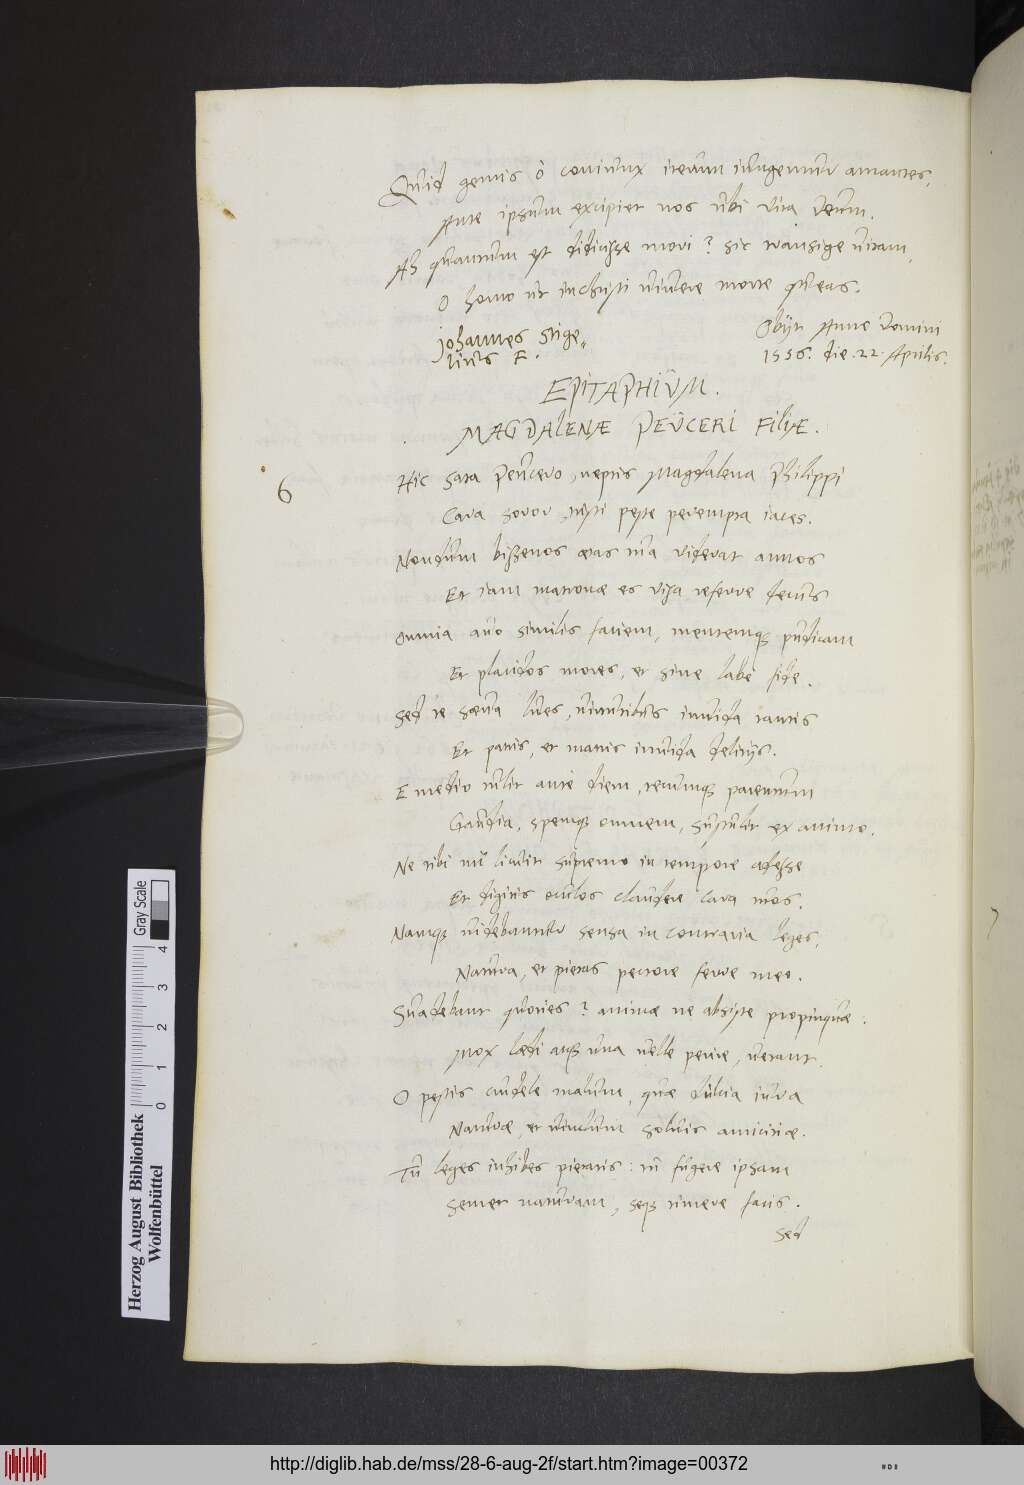 Quid gemis ô coniunx iterum iungemur amantes,
Ante ipsum excipiet nos ubi vita Deum.
Ah quantum est didicisse mori? sic transige vitam,
O homo ut in Christi vivere morte queas.
Johannes Stige„
lius F.
Obijt Anno Domini
1556. die .22. Aprilis.
EPITAPHIUM.
MAGDALENÆ PEUCERI FILIÆ.
6
Hic sata Peucero, neptis Magdalena Philippi
Cara soror, tristi peste perempta iaces.
Nondum bissenos ætas tua viderat annos
Et iam matronæ es visa referre decus
Omnia avo similis faciem, mentemq; pudicam
Et placidos mores, et sine labe fide.
Sed te sæva lues, virtutibus invida tantis
Et patris, et matris invida delitijs.
E medio tulit ante diem, tecumq; parentum
Gaudia, spemq; omnem, sustulit ex animo.
Ne tibi mi licuit supremo in tempore adesse
Et digitis oculos claudere cara tuos.
Namq; videbantur sensa in contraria leges,
Natura, et pietas pectore ferre meo.
Suadebant quoties? animæ ne absiste propinquæ:
Mox lædi atq; una velle perire, vetant.
O pestis crudele malum, quæ dulcia iura
Naturæ, et vinclum solvis amicitiæ.
Tu leges inhibes pietatis: tu fugere ipsam
Semet naturam, seq; timere facis.
Sed
Herzog August Bibliothek
Wolfenbüttel
0 1 2 3 4
Gray Scale
http://diglib.hab.de/mss/28-6-aug-2f/start.htm?image=00372